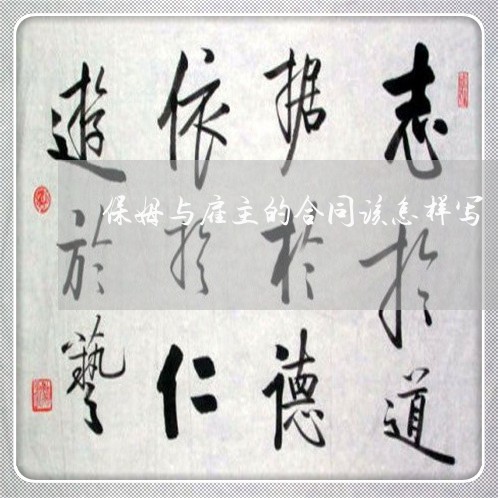 志於道
据於德
依於仁
遊於藝
保姆与雇主的合同该怎样写